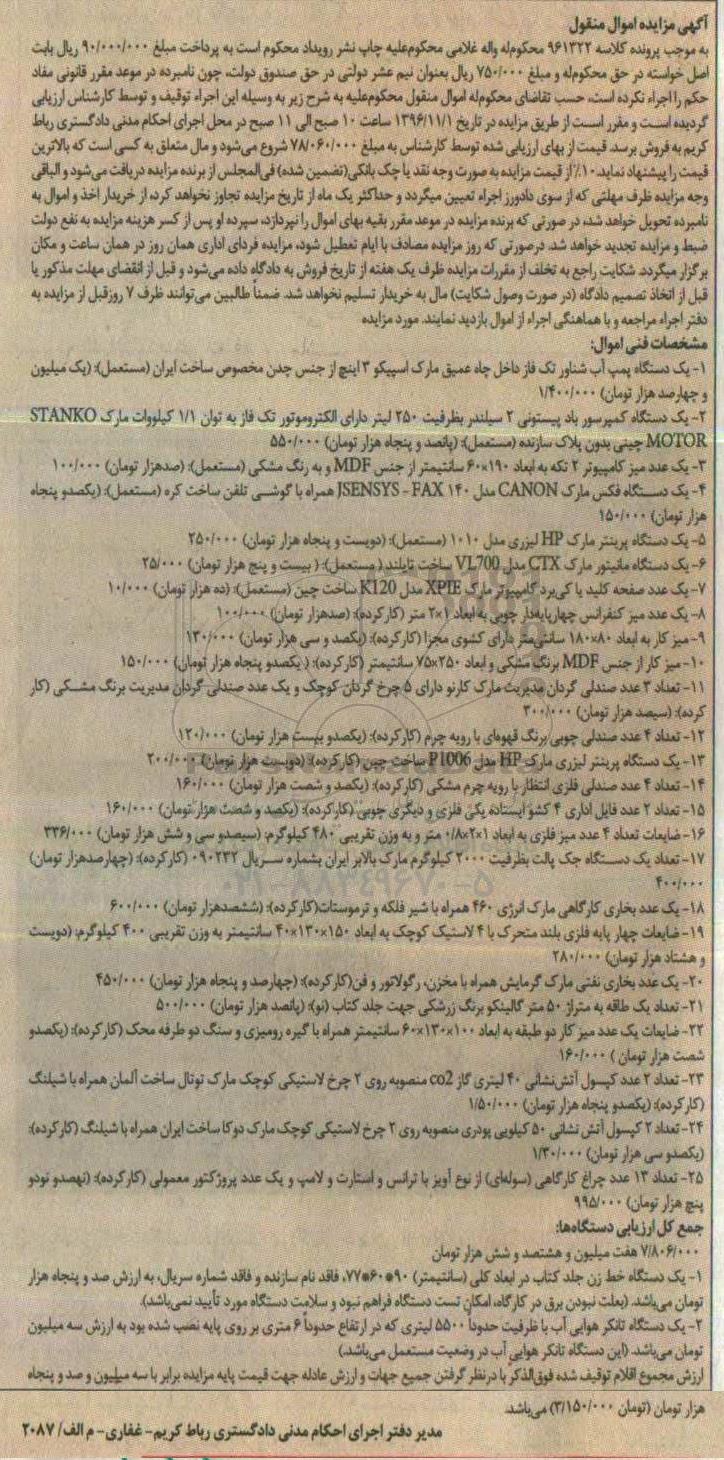 آگهی مزایده اموال منقول
به موجب پرونده کلاسه ۹۶۱۳۲۲ محکوم‌له واله غلامی محکوم‌علیه چاپ نشر رویداد محکوم است به پرداخت مبلغ ۹۰/۰۰۰/۰۰۰ ریال بابت
اصل خواسته در حق محکوم‌له و مبلغ ۷۵۰/۰۰۰ ریال بعنوان نیم عشر دولتی در حق صندوق دولت، چون نامبرده در موعد مقرر قانونی مفاد
حکم را اجراء نکرده است، حسب تقاضای محکوم‌له اموال منقول محکوم‌علیه به شرح زیر به وسیله این اجراء توقیف و توسط کارشناس ارزیابی
گردیده است و مقرر است از طریق مزایده در تاریخ ۱۳۹۶/۱۱/۱ ساعت ۱۰ صبح الی ۱۱ صبح در محل اجرای احکام مدنی دادگستری رباط
کریم به فروش برسد. قیمت از بهای ارزیابی شده توسط کارشناس به مبلغ ۷۸/۰۶۰/۰۰۰ شروع می‌شود و مال متعلق به کسی است که بالاترین
قیمت را پیشنهاد نماید. ۱۰٪ از قیمت مزایده به صورت وجه نقد یا چک بانکی(تضمین شده) فی‌المجلس از برنده مزایده دریافت می‌شود و الباقی
وجه مزایده ظرف مهلتی که از سوی دادورز اجراء تعیین میگردد و حداکثر یک ماه از تاریخ مزایده تجاوز نخواهد کرد، از خریدار اخذ و اموال به
نامبرده تحویل خواهد شد، در صورتی که برنده مزایده در موعد مقرر بقیه بهای اموال را نپردازد، سپرده او پس از کسر هزینه مزایده به نفع دولت
ضبط و مزایده تجدید خواهد شد. درصورتی که روز مزایده مصادف با ایام تعطیل شود، مزایده فردای اداری همان روز در همان ساعت و مکان
برگزار میگردد. شکایت راجع به تخلف از مقررات مزایده ظرف یک هفته از تاریخ فروش به دادگاه داده می‌شود و قبل از انقضای مهلت مذکور یا
قبل از اتخاذ تصمیم دادگاه (در صورت وصول شکایت) مال به خریدار تسلیم نخواهد شد. ضمناً طالبین می‌توانند ظرف ۷ روزقبل از مزایده به
دفتر اجراء مراجعه و با هماهنگی اجراء از اموال بازدید نمایند. مورد مزایده
مشخصات فنی اموال:
۱- یک دستگاه پمپ آب شناور تک فاز داخل چاه عمیق مارک اسپیکو ۳ اینچ از جنس چدن مخصوص ساخت ایران (مستعمل): (یک میلیون
و چهارصد هزار تومان) ۱/۴۰۰/۰۰۰
۲- یک دستگاه کمپرسور باد پیستونی ۲ سیلندر بظرفیت ۲۵۰ لیتر دارای الکتروموتور تک فاز به توان ۱/۱ کیلووات مارک STANKO
MOTOR چینی بدون پلاک سازنده (مستعمل): (پانصد و پنجاه هزار تومان) ۵۵۰/۰۰۰
۳- یک عدد میز کامپیوتر ۲ تکه به ابعاد ۱۹۰×۶۰ سانتیمتر از جنس MDF و به رنگ مشکی (مستعمل): (صدهزار تومان) ۱۰۰/۰۰۰
۴- یک دستگاه فکس مارک CANON مدل JSENSYS - FAX ۱۴۰ همراه با گوشی تلفن ساخت کره (مستعمل): (یکصدو پنجاه
هزار تومان) ۱۵۰/۰۰۰
۵- یک دستگاه پرینتر مارک HP لیزری مدل ۱۰۱۰ (مستعمل): (دویست و پنجاه هزار تومان) ۲۵۰/۰۰۰
۶- یک دستگاه مانیتور مارک CTX مدل VL700 ساخت تایلند (مستعمل): (بیست و پنج هزار تومان) ۲۵/۰۰۰
۷- یک عدد صفحه کلید یا کی‌برد کامپیوتر مارک XPIE مدل K120 ساخت چین (مستعمل): (ده هزار تومان) ۱۰/۰۰۰
۸- یک عدد میز کنفرانس چهارپایه‌دار چوبی به ابعاد ۱×۲ متر (کارکرده): (صدهزار تومان) ۱۰۰/۰۰۰
۹- میز کار به ابعاد ۸۰×۱۸۰ سانتی‌متر دارای کشوی مجزا (کارکرده): (یکصد و سی هزار تومان) ۱۳۰/۰۰۰
۱۰- میز کار از جنس MDF برنگ مشکی و ابعاد ۲۵۰×۷۵ سانتیمتر (کارکرده): (یکصدو پنجاه هزار تومان) ۱۵۰/۰۰۰
۱۱- تعداد ۳ عدد صندلی گردان مدیریت مارک کارنو دارای ۵ چرخ گردان کوچک و یک عدد صندلی گردان مدیریت برنگ مشکی (کار
کرده): (سیصد هزار تومان) ۳۰۰/۰۰۰
۱۲- تعداد ۴ عدد صندلی چوبی برنگ قهوه‌ای با رویه چرم (کارکرده): (یکصدو بیست هزار تومان) ۱۲۰/۰۰۰
۱۳- یک دستگاه پرینتر لیزری مارک HP مدل P1006 ساخت چین (کارکرده): (دویست هزار تومان) ۲۰۰/۰۰۰
۱۴- تعداد ۴ عدد صندلی فلزی انتظار با رویه چرم مشکی (کارکرده): (یکصد و شصت هزار تومان) ۱۶۰/۰۰۰
۱۵- تعداد ۲ عدد فایل اداری ۴ کشو ایستاده یکی فلزی و دیگری چوبی (کارکرده): (یکصد و شصت هزار تومان) ۱۶۰/۰۰۰
۱۶- ضایعات تعداد ۴ عدد میز فلزی به ابعاد ۱×۲×۰/۸ متر و به وزن تقریبی ۴۸۰ کیلوگرم: (سیصدو سی و شش هزار تومان) ۳۳۶/۰۰۰
۱۷- تعداد یک دستگاه جک پالت بظرفیت ۲۰۰۰ کیلوگرم مارک بالابر ایران بشماره سریال ۰۹۰۲۳۲ (کارکرده): (چهارصدهزار تومان)
۴۰۰/۰۰۰
۱۸- یک عدد بخاری کارگاهی مارک انرژی ۴۶۰ همراه با شیر فلکه و ترموستات(کارکرده): (ششصدهزار تومان) ۶۰۰/۰۰۰
۱۹- ضایعات چهار پایه فلزی بلند متحرک با ۴ لاستیک کوچک به ابعاد ۱۵۰×۱۳۰×۴۰ سانتیمتر به وزن تقریبی ۴۰۰ کیلوگرم: (دویست
و هشتاد هزار تومان) ۲۸۰/۰۰۰
۲۰- یک عدد بخاری نفتی مارک گرمایش همراه با مخزن، رگولاتور و فن(کارکرده): (چهارصد و پنجاه هزار تومان) ۴۵۰/۰۰۰
۲۱- تعداد یک طاقه به متراژ ۵۰ متر گالینکو برنگ زرشکی جهت جلد کتاب (نو): (پانصد هزار تومان) ۵۰۰/۰۰۰
۲۲- ضایعات یک عدد میز کار دو طبقه به ابعاد ۱۰۰×۱۳۰×۶۰ سانتیمتر همراه با گیره رومیزی و سنگ دو طرفه محک (کارکرده): (یکصدو
شصت هزار تومان) ۱۶۰/۰۰۰
۲۳- تعداد ۲ عدد کپسول آتش‌نشانی ۴۰ لیتری گاز co2 منصوبه روی ۲ چرخ لاستیکی کوچک مارک توتال ساخت آلمان همراه با شیلنگ
(کارکرده): (یکصدو پنجاه هزار تومان) ۱/۵۰/۰۰۰
۲۴- تعداد ۲ کپسول آتش نشانی ۵۰ کیلویی پودری منصوبه روی ۲ چرخ لاستیکی کوچک مارک دوکا ساخت ایران همراه با شیلنگ (کارکرده):
(یکصدو سی هزار تومان) ۱/۳۰/۰۰۰
۲۵- تعداد ۱۳ عدد چراغ کارگاهی (سوله‌ای) از نوع آویز با ترانس و استارت و لامپ و یک عدد پروژکتور معمولی (کارکرده): (نهصدو نودو
پنج هزار تومان) ۹۹۵/۰۰۰
جمع کل ارزیابی دستگاه‌ها:
۷/۸۰۶/۰۰۰ هفت میلیون و هشتصد و شش هزار تومان
۱- یک دستگاه خط زن جلد کتاب در ابعاد کلی (سانتیمتر) ۹۰*۶۰*۷۷، فاقد نام سازنده و فاقد شماره سریال، به ارزش صد و پنجاه هزار
تومان می‌باشد. (بعلت نبودن برق در کارگاه، امکان تست دستگاه فراهم نبود و سلامت دستگاه مورد تأیید نمی‌باشد).
۲- یک دستگاه تانکر هوایی آب با ظرفیت حدوداً ۵۵۰۰ لیتری که در ارتفاع حدوداً ۶ متری بر روی پایه نصب شده بود به ارزش سه میلیون
تومان می‌باشد. (این دستگاه تانکر هوایی آب در وضعیت مستعمل می‌باشد.)
ارزش مجموع اقلام توقیف شده فوق‌الذکر با درنظر گرفتن جمیع جهات و ارزش عادله جهت قیمت پایه مزایده برابر با سه میلیون و صد و پنجاه
هزار تومان (تومان ۳/۱۵۰/۰۰۰) می‌باشد.
مدیر دفتر اجرای احکام مدنی دادگستری رباط کریم- غفاری- م الف/ ۲۰۸۷
۰۲۱-۸۸۳۴۹۶۷۰-۵